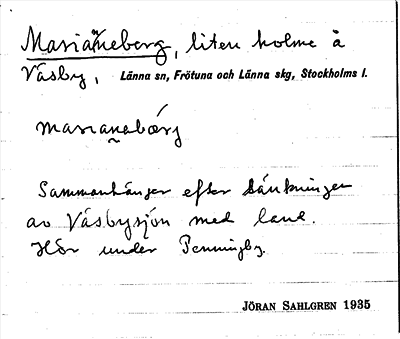 Marianeberg, liten holme å
Väsby, Länna sn, Frötuna och Länna skg, Stockholms l.
marianabærj
Sammanhänger efter sänkningen
av Väsbysjön med land.
Hör under Penningby.
JÖRAN SAHLGREN 1935